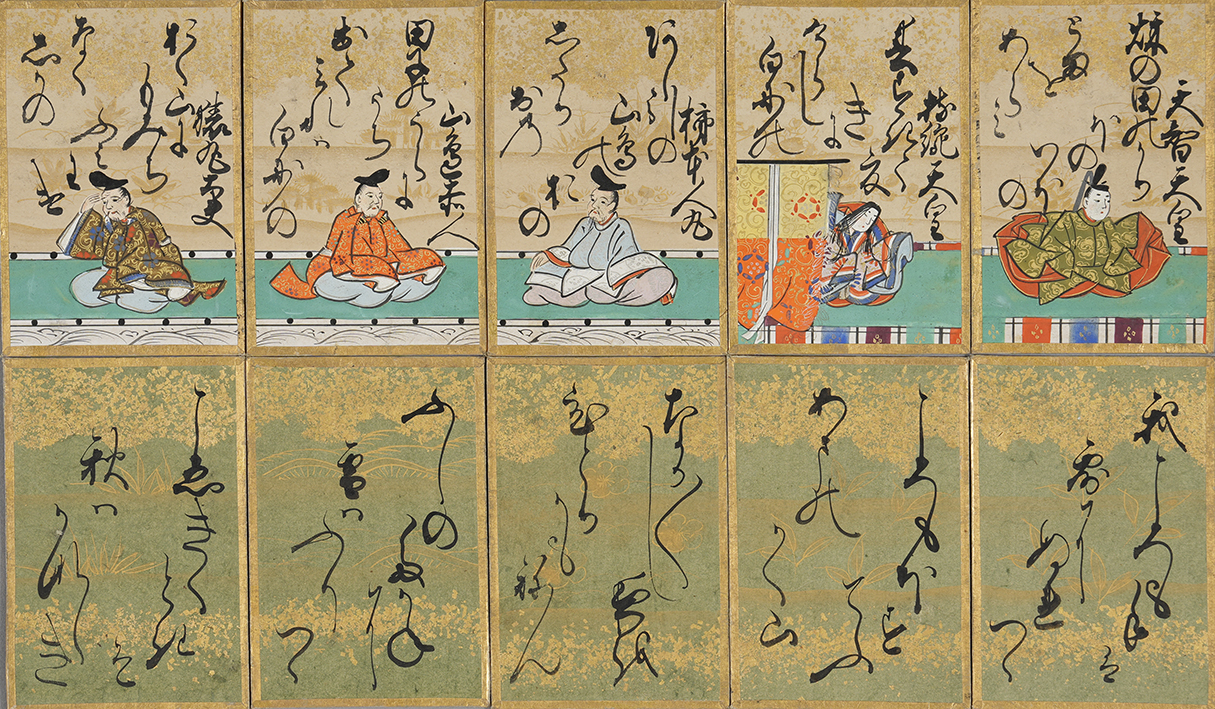 天智天皇
秌の田のかり
ほの
いほの
とまを
あらみ
持統天皇
春すきて
夏
きに
けらし
白妙の
柿本人丸
あし引の
山鳥の
おの
したり
おの
山邊赤人
田子のうらに
うち
出て
みれハ
白妙の
猿丸大夫
おく山に
もみち
ふみ
わけ
なく
しかの
我ころも手
は
露に
ぬれ
つゝ
ころもほす
てふ
あまの
かく山
なか〳〵し
夜を
ひとり
かも
ねん
ふしの
たかねに
雪ハ
ふり
つゝ
こゑきく
とき
そ
秋ハ
かなしき